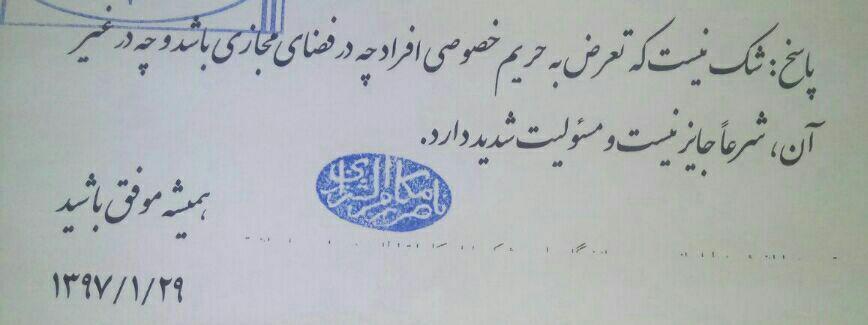 پاسخ: شک نیست که تعرض به حریم خصوصی افراد چه در فضای مجازی باشد و چه در غیر
آن، شرعاً جایز نیست و مسئولیت شدید دارد.
همیشه موفق باشید
ناصر مکارم الشیرازی
۱۳۹۷/۱/۲۹